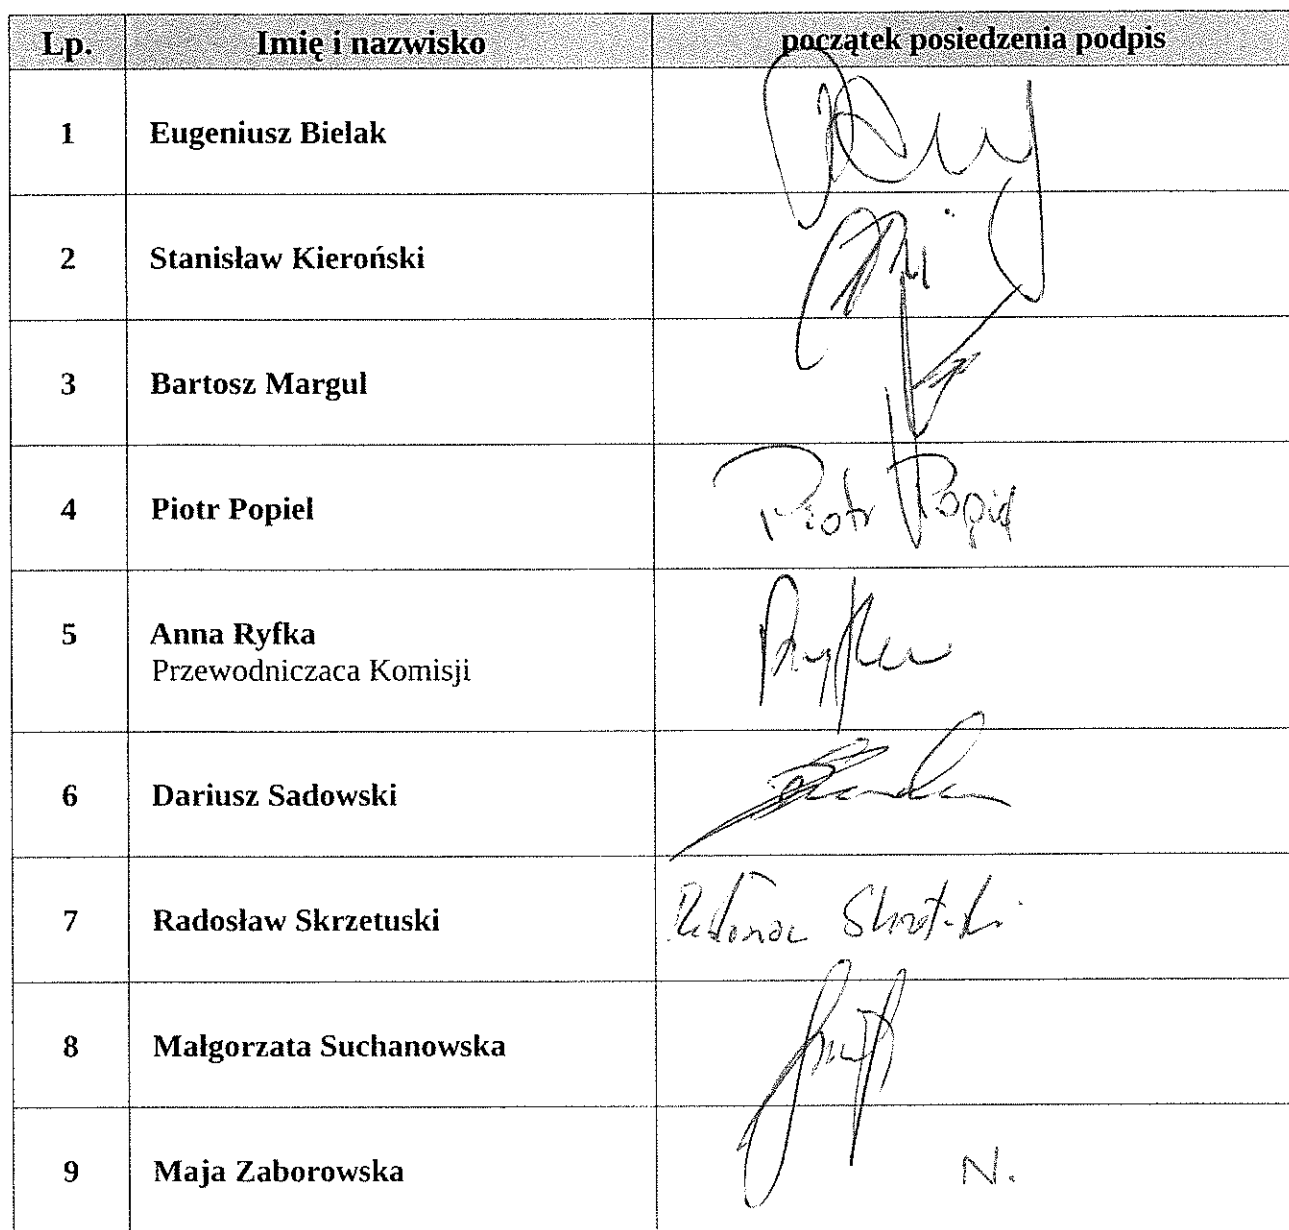 Lp. Imię i nazwisko początek posiedzenia podpis
1 Eugeniusz Bielak
2 Stanisław Kieroński
3 Bartosz Margul
4 Piotr Popiel Piotr Popiel
5 Anna Ryfka
Przewodniczaca Komisji
6 Dariusz Sadowski
7 Radosław Skrzetuski
8 Małgorzata Suchanowska
9 Maja Zaborowska N.